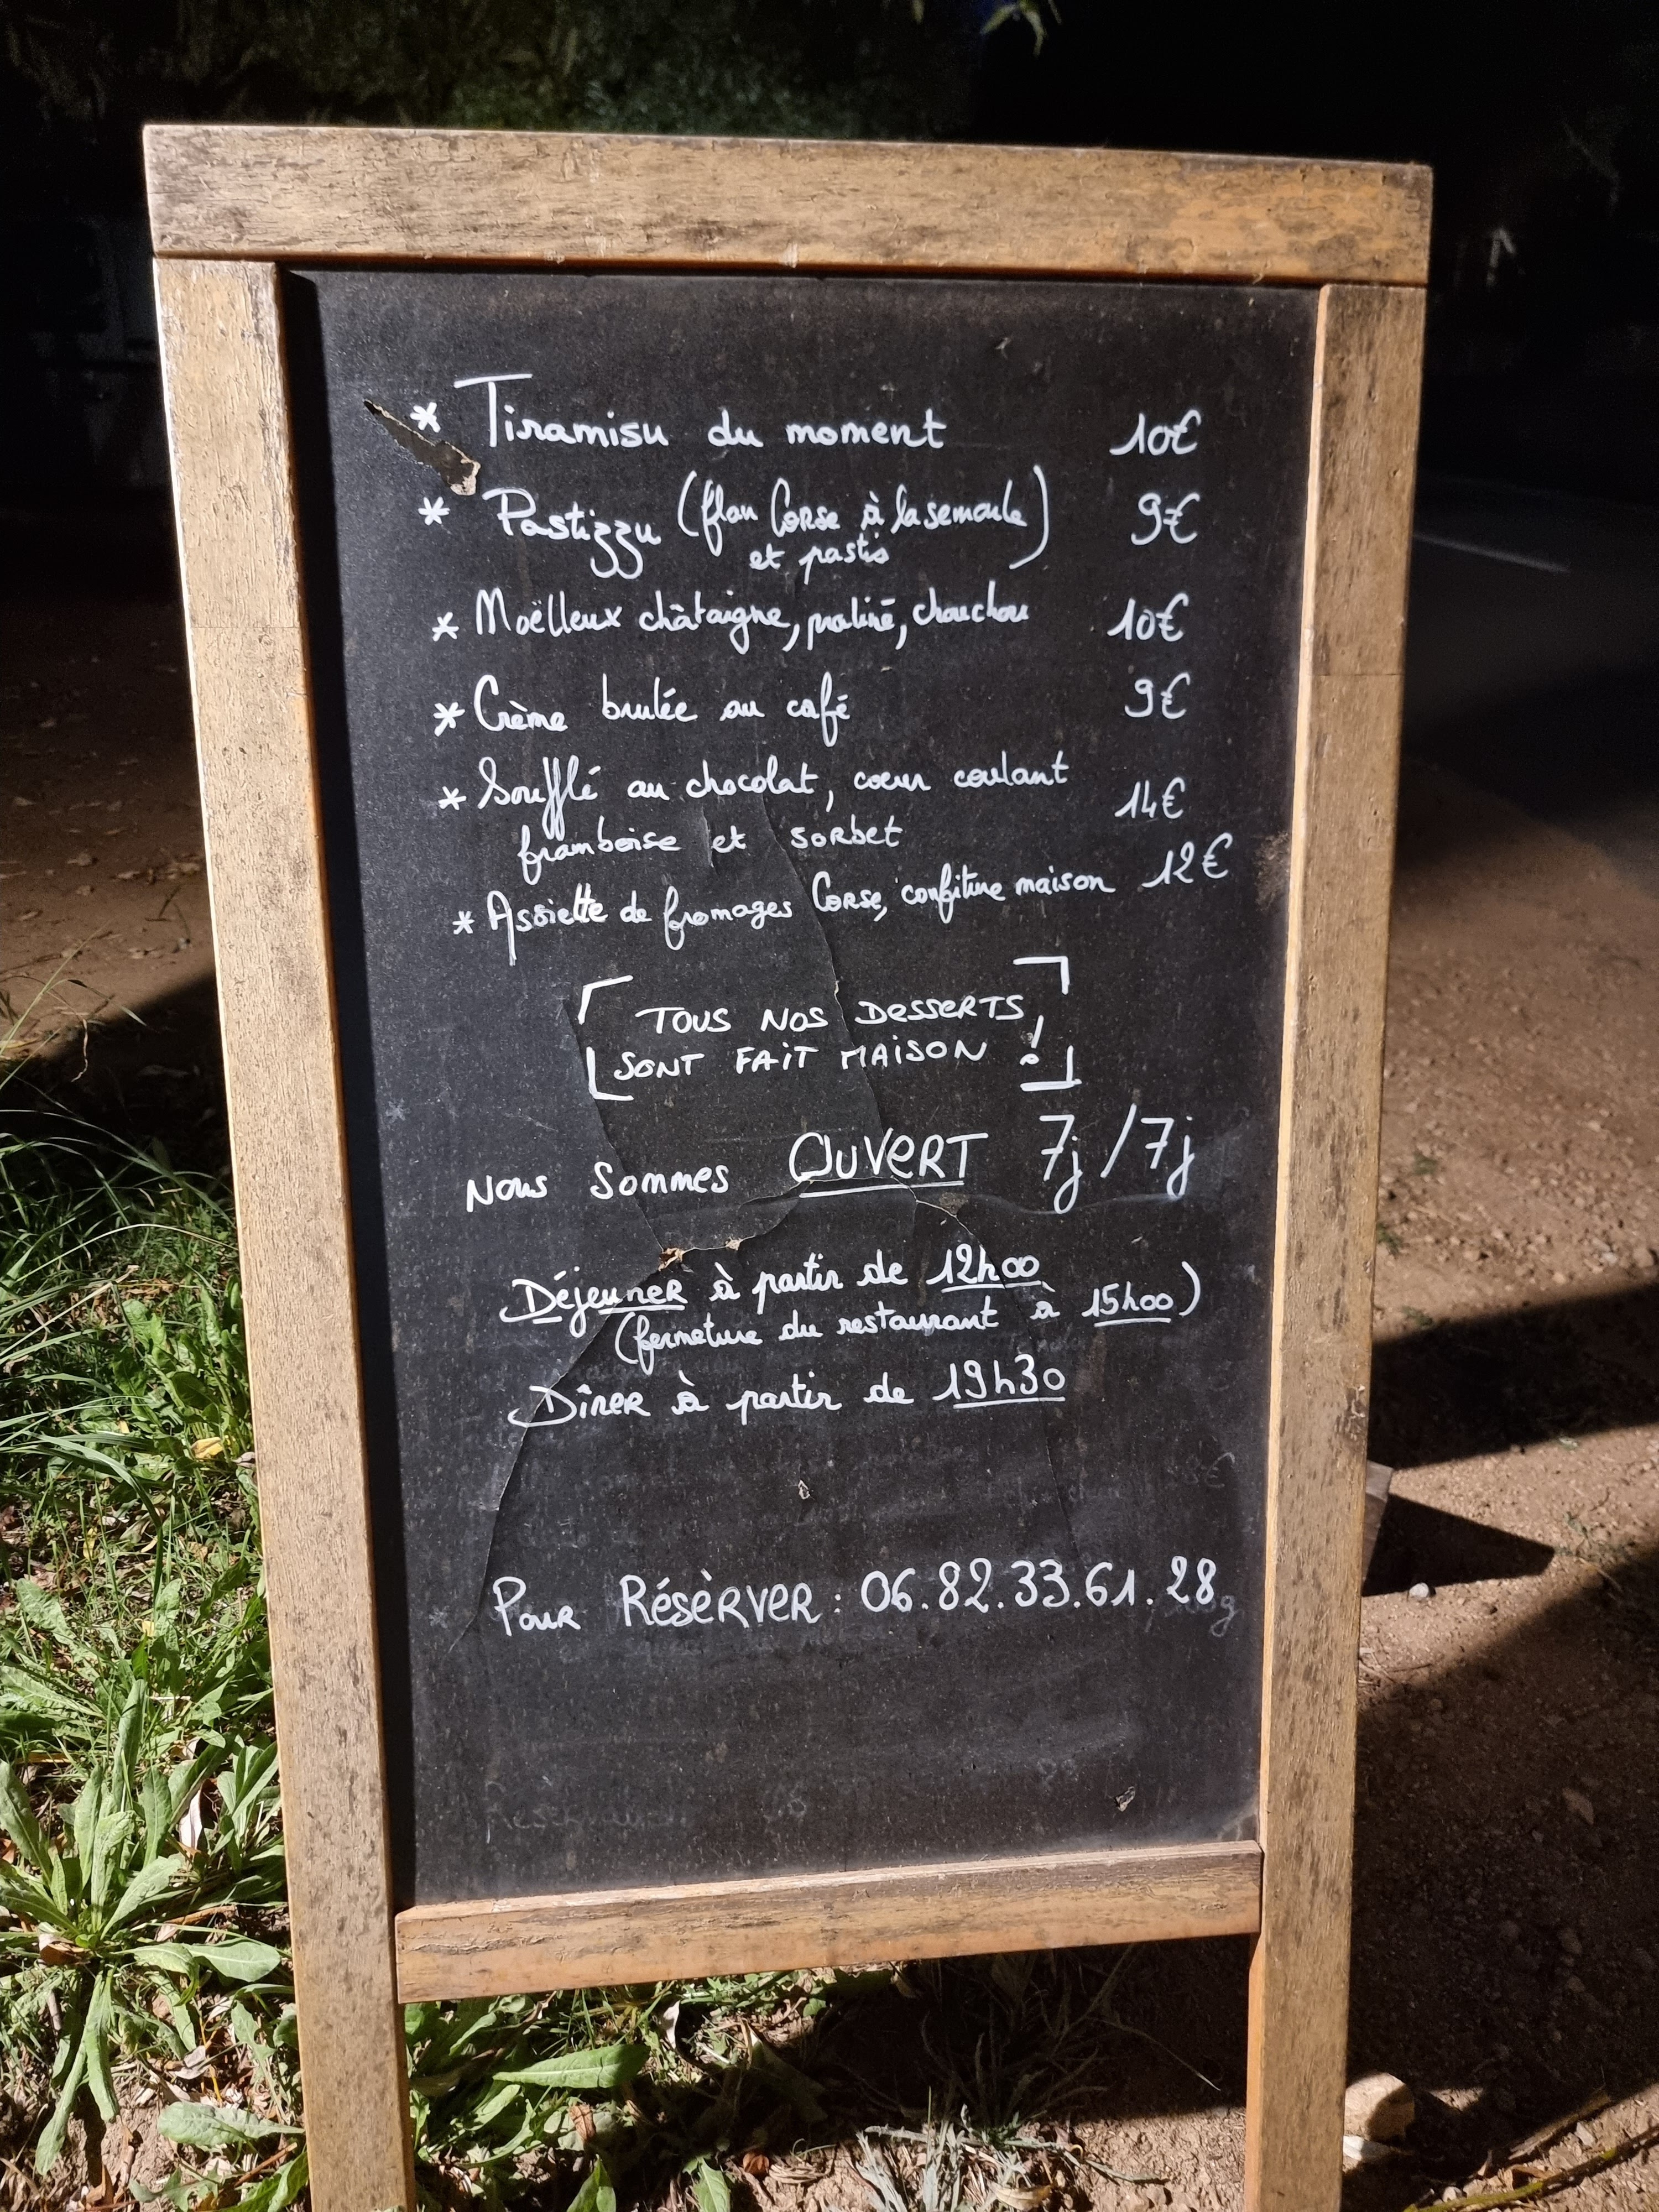 * Tiramisu du moment 10€
* Pastizzu (flan Corse à la semoule) 9€
et pastis
* Moëlleux châtaigne, praliné, chouchou 10€
* Crème brulée au café 9€
* Soufflé au chocolat, cœur coulant 14€
framboise et sorbet
* Assiette de fromages Corse, confiture maison 12€
TOUS NOS DESSERTS
SONT FAIT MAISON !
Nous Sommes OUVERT 7j/7j
Déjeuner à partir de 12h00
(fermeture du restaurant à 15h00)
Dîner à partir de 19h30
Pour Résèrver : 06.82.33.61.28